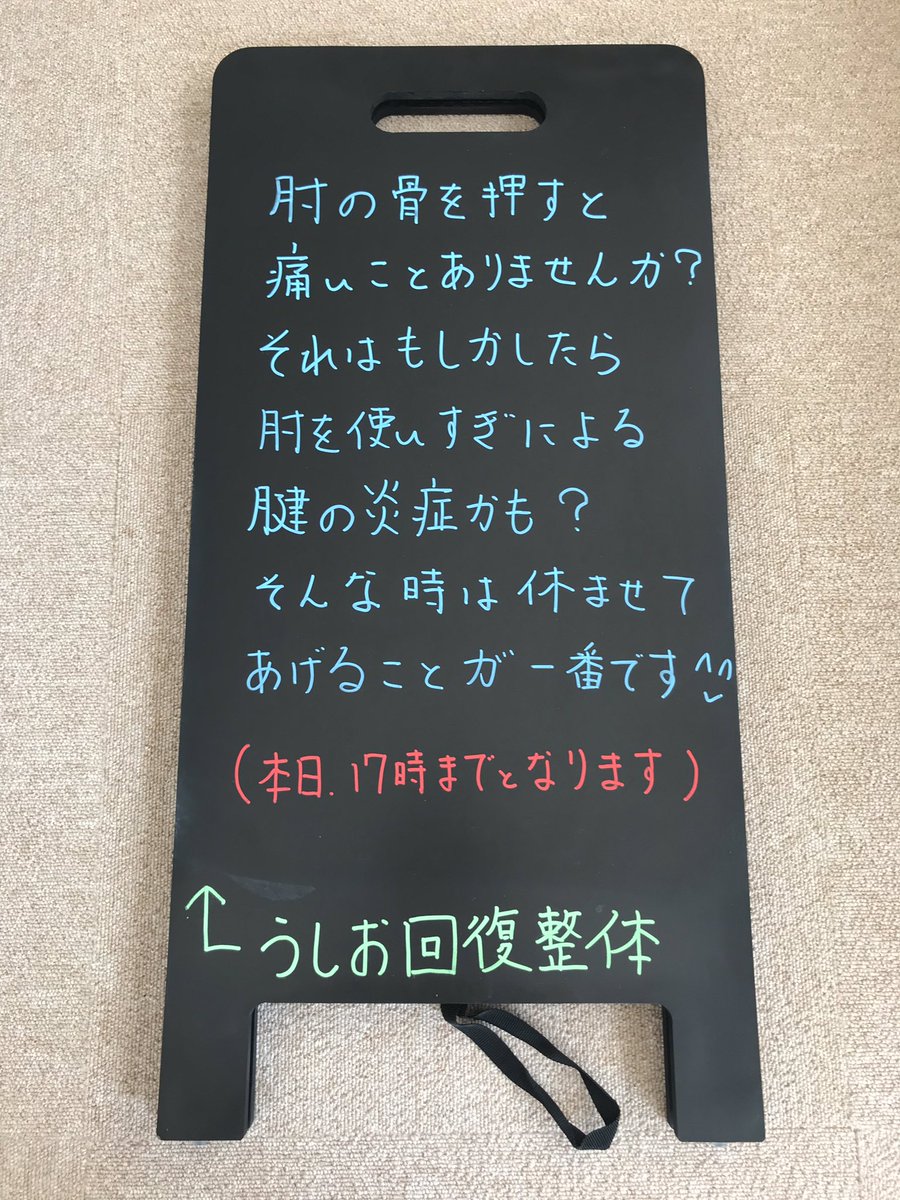 肘の骨を押すと
痛いことありませんか？
それはもしかしたら
肘を使いすぎによる
腱の炎症かも？
そんな時は休ませて
あげることが一番です^^
(本日、17時までとなります)
↑うしお回復整体